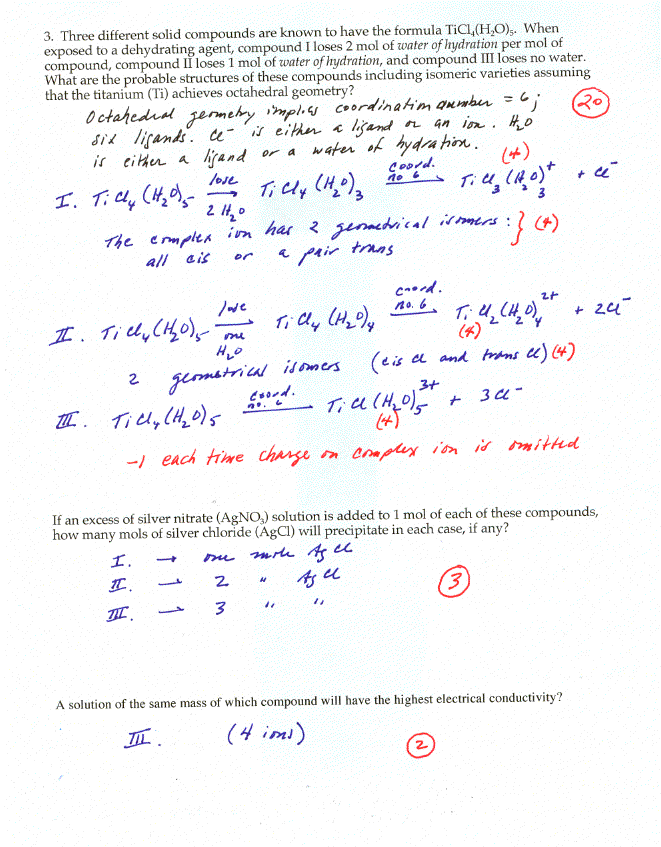 3. Three different solid compounds are known to have the formula TiCl₄(H₂O)₅. When
exposed to a dehydrating agent, compound I loses 2 mol of water of hydration per mol of
compound, compound II loses 1 mol of water of hydration, and compound III loses no water.
What are the probable structures of these compounds including isomeric varieties assuming
that the titanium (Ti) achieves octahedral geometry?
Octahedral geometry implies coordination number = 6; (20)
six ligands. Cl⁻ is either a ligand or an ion. H₂O
is either a ligand or a water of hydration. (4)
I. TiCl₄(H₂O)₅ lose 2 H₂O → TiCl₄(H₂O)₃ coord. no 6 → TiCl₃(H₂O)₃⁺ + Cl⁻
The complex ion has 2 geometrical isomers : } (4)
all cis or a pair trans
II. TiCl₄(H₂O)₅ lose one H₂O → TiCl₄(H₂O)₄ coord. no. 6 → TiCl₂(H₂O)₄²⁺ + 2Cl⁻
(4)
2 geometrical isomers (cis Cl and trans Cl) (4)
III. TiCl₄(H₂O)₅ coord. no. 6 → TiCl(H₂O)₅³⁺ + 3Cl⁻
(4)
-1 each time charge on complex ion is omitted
If an excess of silver nitrate (AgNO₃) solution is added to 1 mol of each of these compounds,
how many mols of silver chloride (AgCl) will precipitate in each case, if any?
I. → one mole AgCl
II. → 2 " AgCl (3)
III. → 3 " "
A solution of the same mass of which compound will have the highest electrical conductivity?
III. (4 ions) (2)